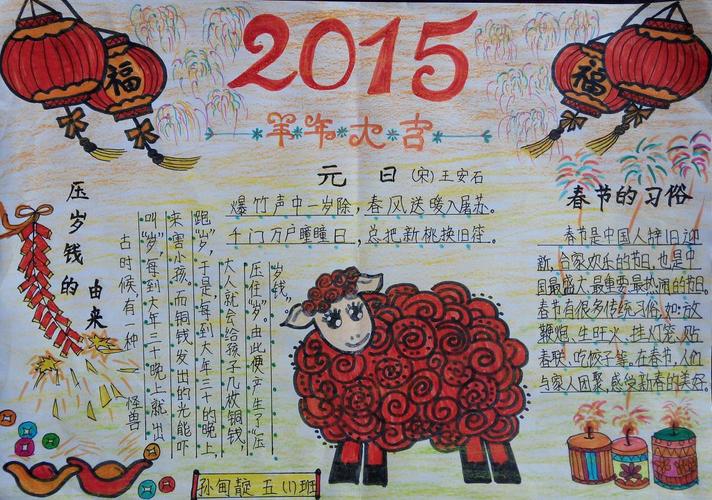 2015
羊年大吉
福
福
压岁钱的由来
古时候有一种怪兽
叫“岁”,每到大年三十晚上就出
来害小孩。而铜钱发出的光能吓
跑“岁”,于是,每到大年三十的晚上
大人就会给孩子几枚铜钱,
压住“岁”,由此便产生了“压
岁钱”。
元 日 (宋)王安石
爆竹声中一岁除,春风送暖入屠苏。
千门万户瞳瞳日,总把新桃换旧符。
春节的习俗
春节是中国人辞旧迎
新、合家欢乐的节日,也是中
国最盛大、最重要、最热闹的节日。
春节有很多传统习俗,如:放
鞭炮、生旺火、挂灯笼、贴
春联、吃饺子等。在春节,人们
与家人团聚,感受新春的美好。
孙甸靛 五(1)班